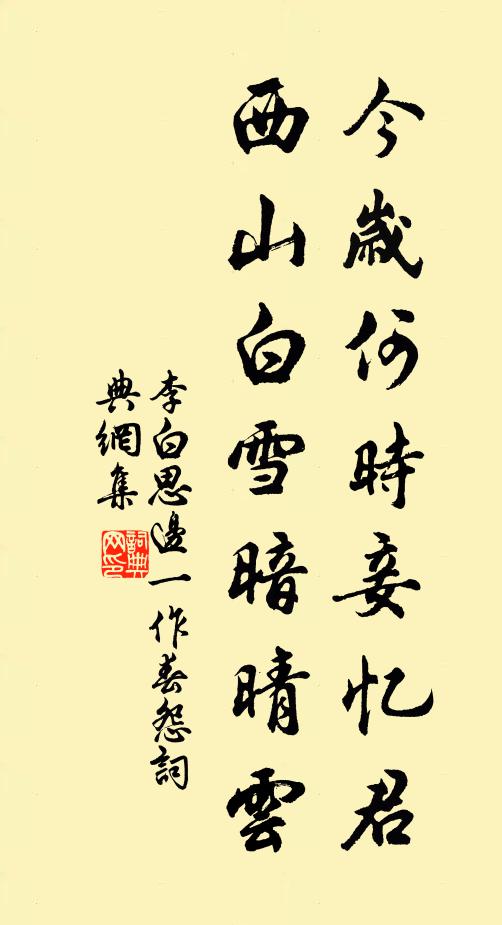 今歲何時妾忆君
西山白雪暗晴雲
李白思邊一作春怨詞
典網集
詞典
网印